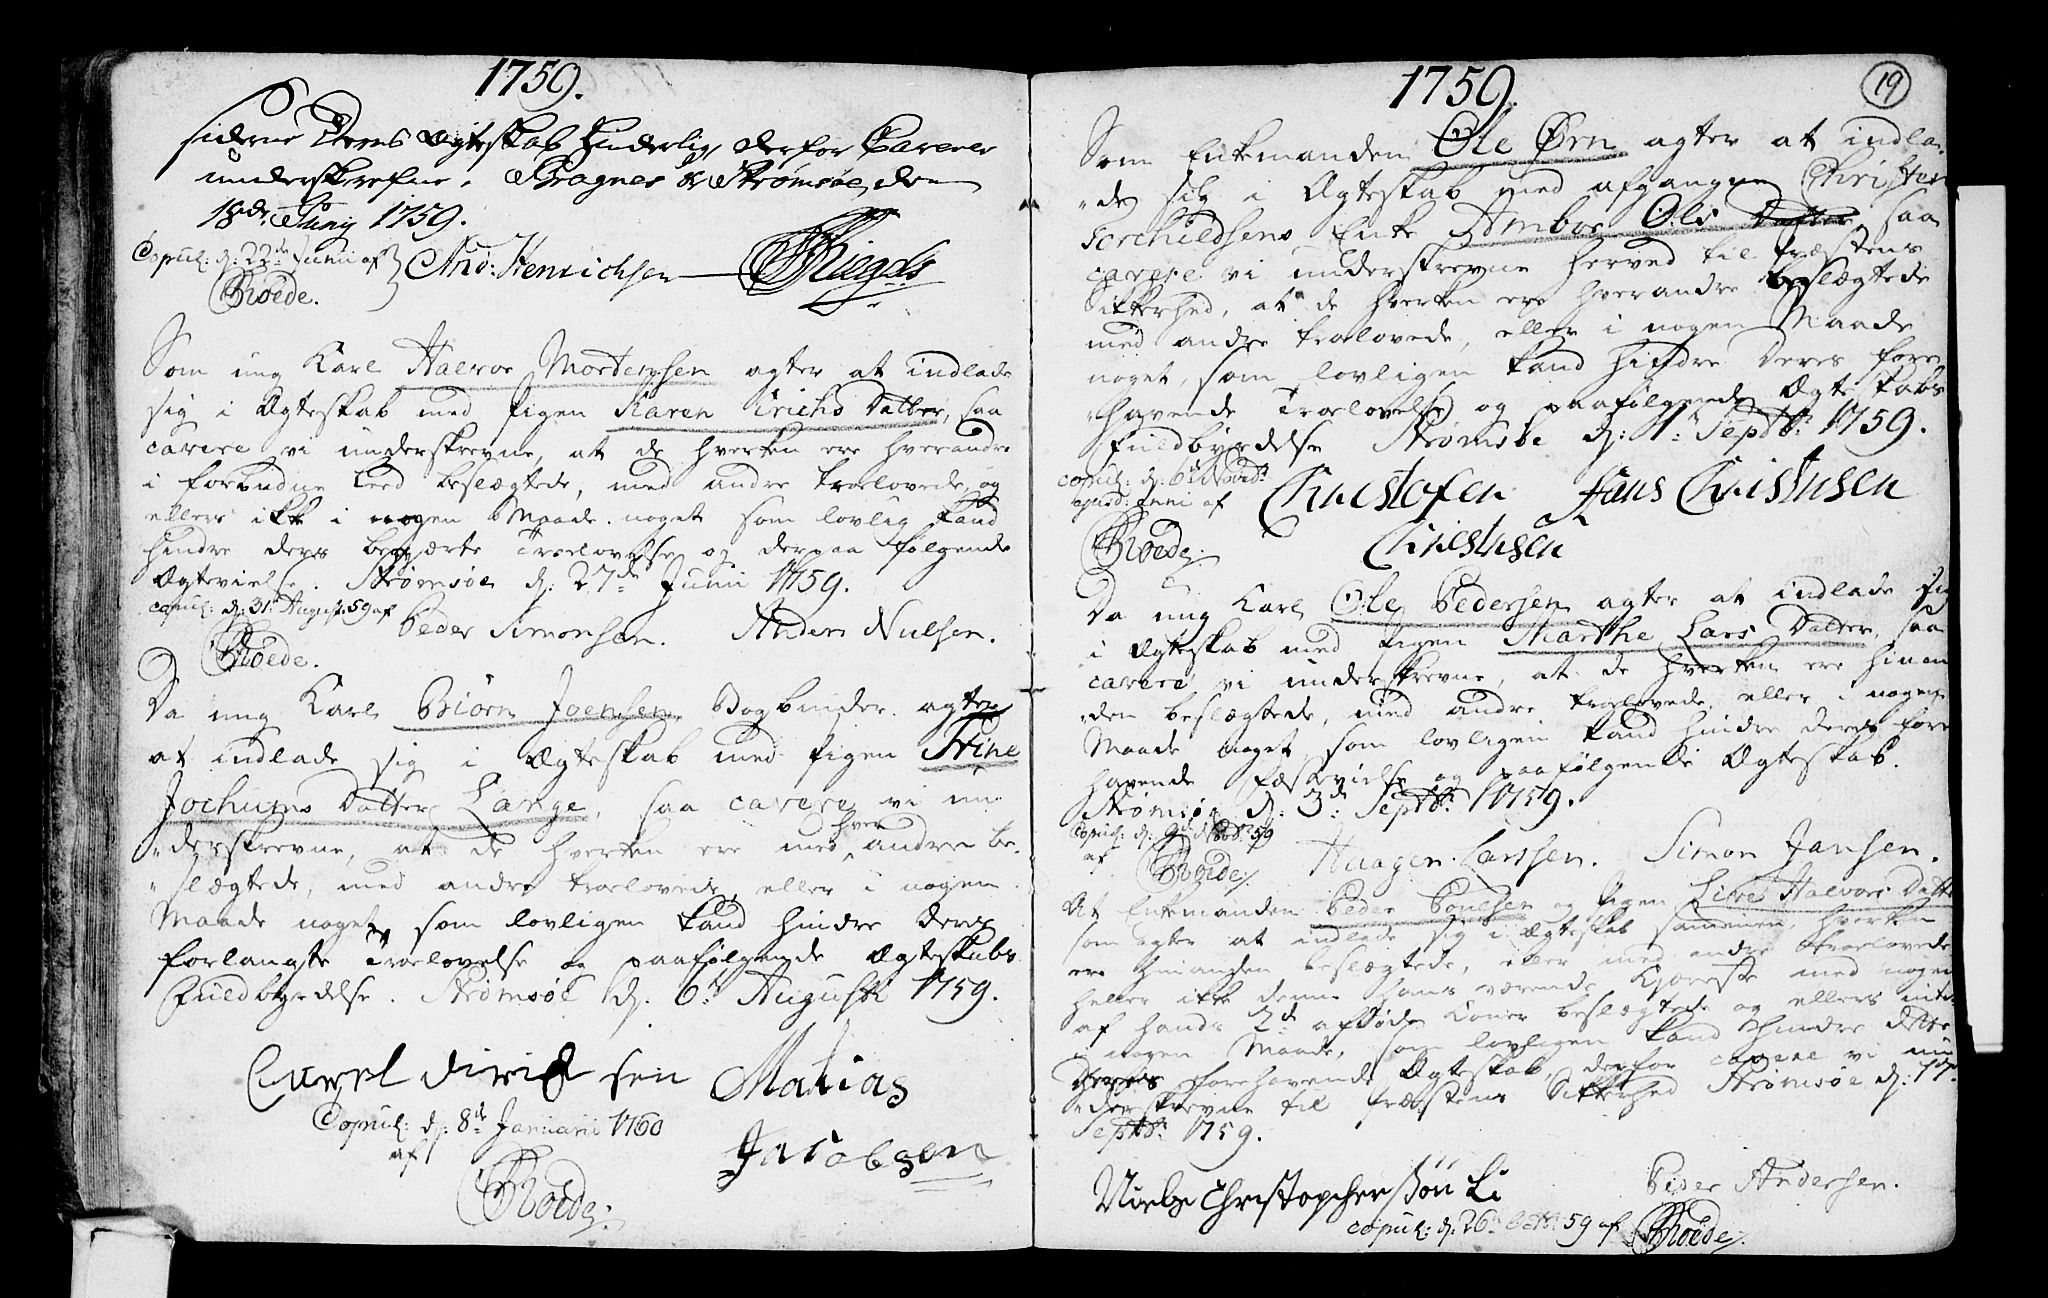 1759.
siderne Deres Ægteskab hinderlig, derfor Caverer
underskrefne. Bragnes & Strømsøe, den
18de Juny 1759.
Copul: d: 22de Junii af
And: Henrichsen
Roede.
Som ung Karl Halvor Mortensen agter at indlade
sig i Ægteskab med Pigen Karen Erichs Datter, saa
cavere vi underskrevne, at de hverken ere hverandre
i forbudne Leed beslægtede, med andre troelovede, og
ellers ikke i nogen Maade noget som lovlig kand
hindre ders begærte Troelovelse og derpaa følgende
Ægtevielse. Strømsøe d: 27de Junii 1759.
copul: d: 31t August 59 af
Peder Simonsen. Anders Nielsen.
Roede.
Da ung Karl Biørn Joensen Bogbinder agter
at indlade sig i Ægteskab med Pigen Stine
Jochums Datter Lange, saa cavere vi un-
derskrevne, at de hverken ere med hver andre be-
slægtede, med andre troelovede, eller i nogen
Maade noget, som lovligen kand hindre deres
forlangte Troelovelse og paafølgende Ægteskabs
Fuldbyrdelse. Strømsøe d: 6t Augusti 1759.
Matias
Jacobsen
Copul: d: 8de Januarii 1760
af
Roede.
1759.
19
Som Enkemanden Ole Ørn agter at indla-
de sig i Ægteskab med afgangne Christen
Torchildsens Enke Ambor Ols Datter, saa
cavere vi underskrevne herved til Præstens
Sikkerhed, at de hverken ere hverandre beslægtede
med andre troelovede, eller i nogen Maade
noget, som lovligen kand hindre Deres fore-
havende Troelovelse og paafølgende Ægteskabs
Fuldbyrdelse Strømsøe d: 1t Septbr: 1759.
copul: d: 6de Novbr:
af
Christofer Hans Christensen
Christensen
Roede.
Da ung Karl Ole Pedersen agter at indlade sig
i Ægteskab med Pigen Marthe Lars Datter, saa
cavere vi underskrevne, at de hverken ere hinan-
den beslægtede, med andre troelovede eller i nogen
Maade noget, som lovligen kand hindre deres fore-
havende Fæstevielse og paafølgende Ægteskab.
Strømsøe d: 3de Septbr: 1759.
Copul: d: 9de 59
af
Roede. Haagen Larssen. Simon Jansen.
At Enkemanden Peder Povelsen og Pigen Lives Halvors Datter
som agter at indlade sig i Ægteskab sammen, hverken
ere hinanden beslægtede, eller med andre troelovede
heller ikke denne hans værende Kiæreste med nogen
af hands 2de afdøde Koner beslægtede og ellers intet
i nogen Maade, som lovligen kand hindre dette
Deres forehavende Ægteskab, derfor cavere vi un-
derskrevne til Præstens Sikkerhed Strømsøe d: 17de
Septbr: 1759.
Niels Christophersøn Li Peder Andersen.
copul: d: 26 Octbr: 59 af Roede.